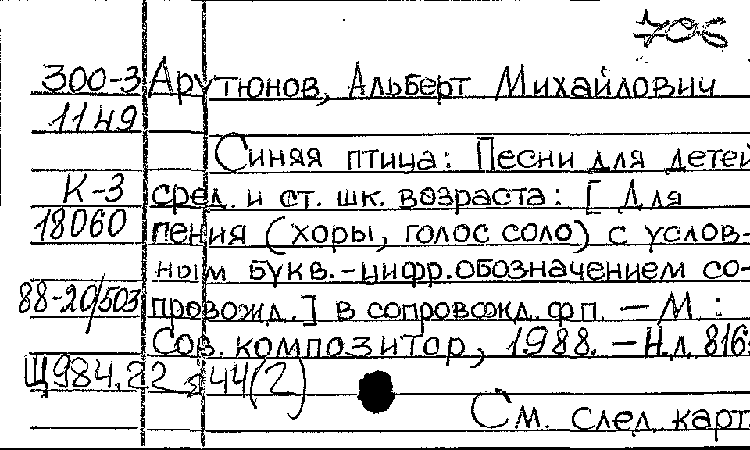 706
300-3 Арутюнов, Альберт Михайлович
1149
Синяя птица: Песни для детей
К-3 сред. и ст. шк. возраста: [Для
18060 пения (хоры, голос соло) с услов-
ным букв.-цифр. обозначением со-
88-20/503 провожд.] в сопровожд. фп. — М.:
Сов. композитор, 1988. — Н.д. 816
Щ984.22 я44(2)
См. след. карт.